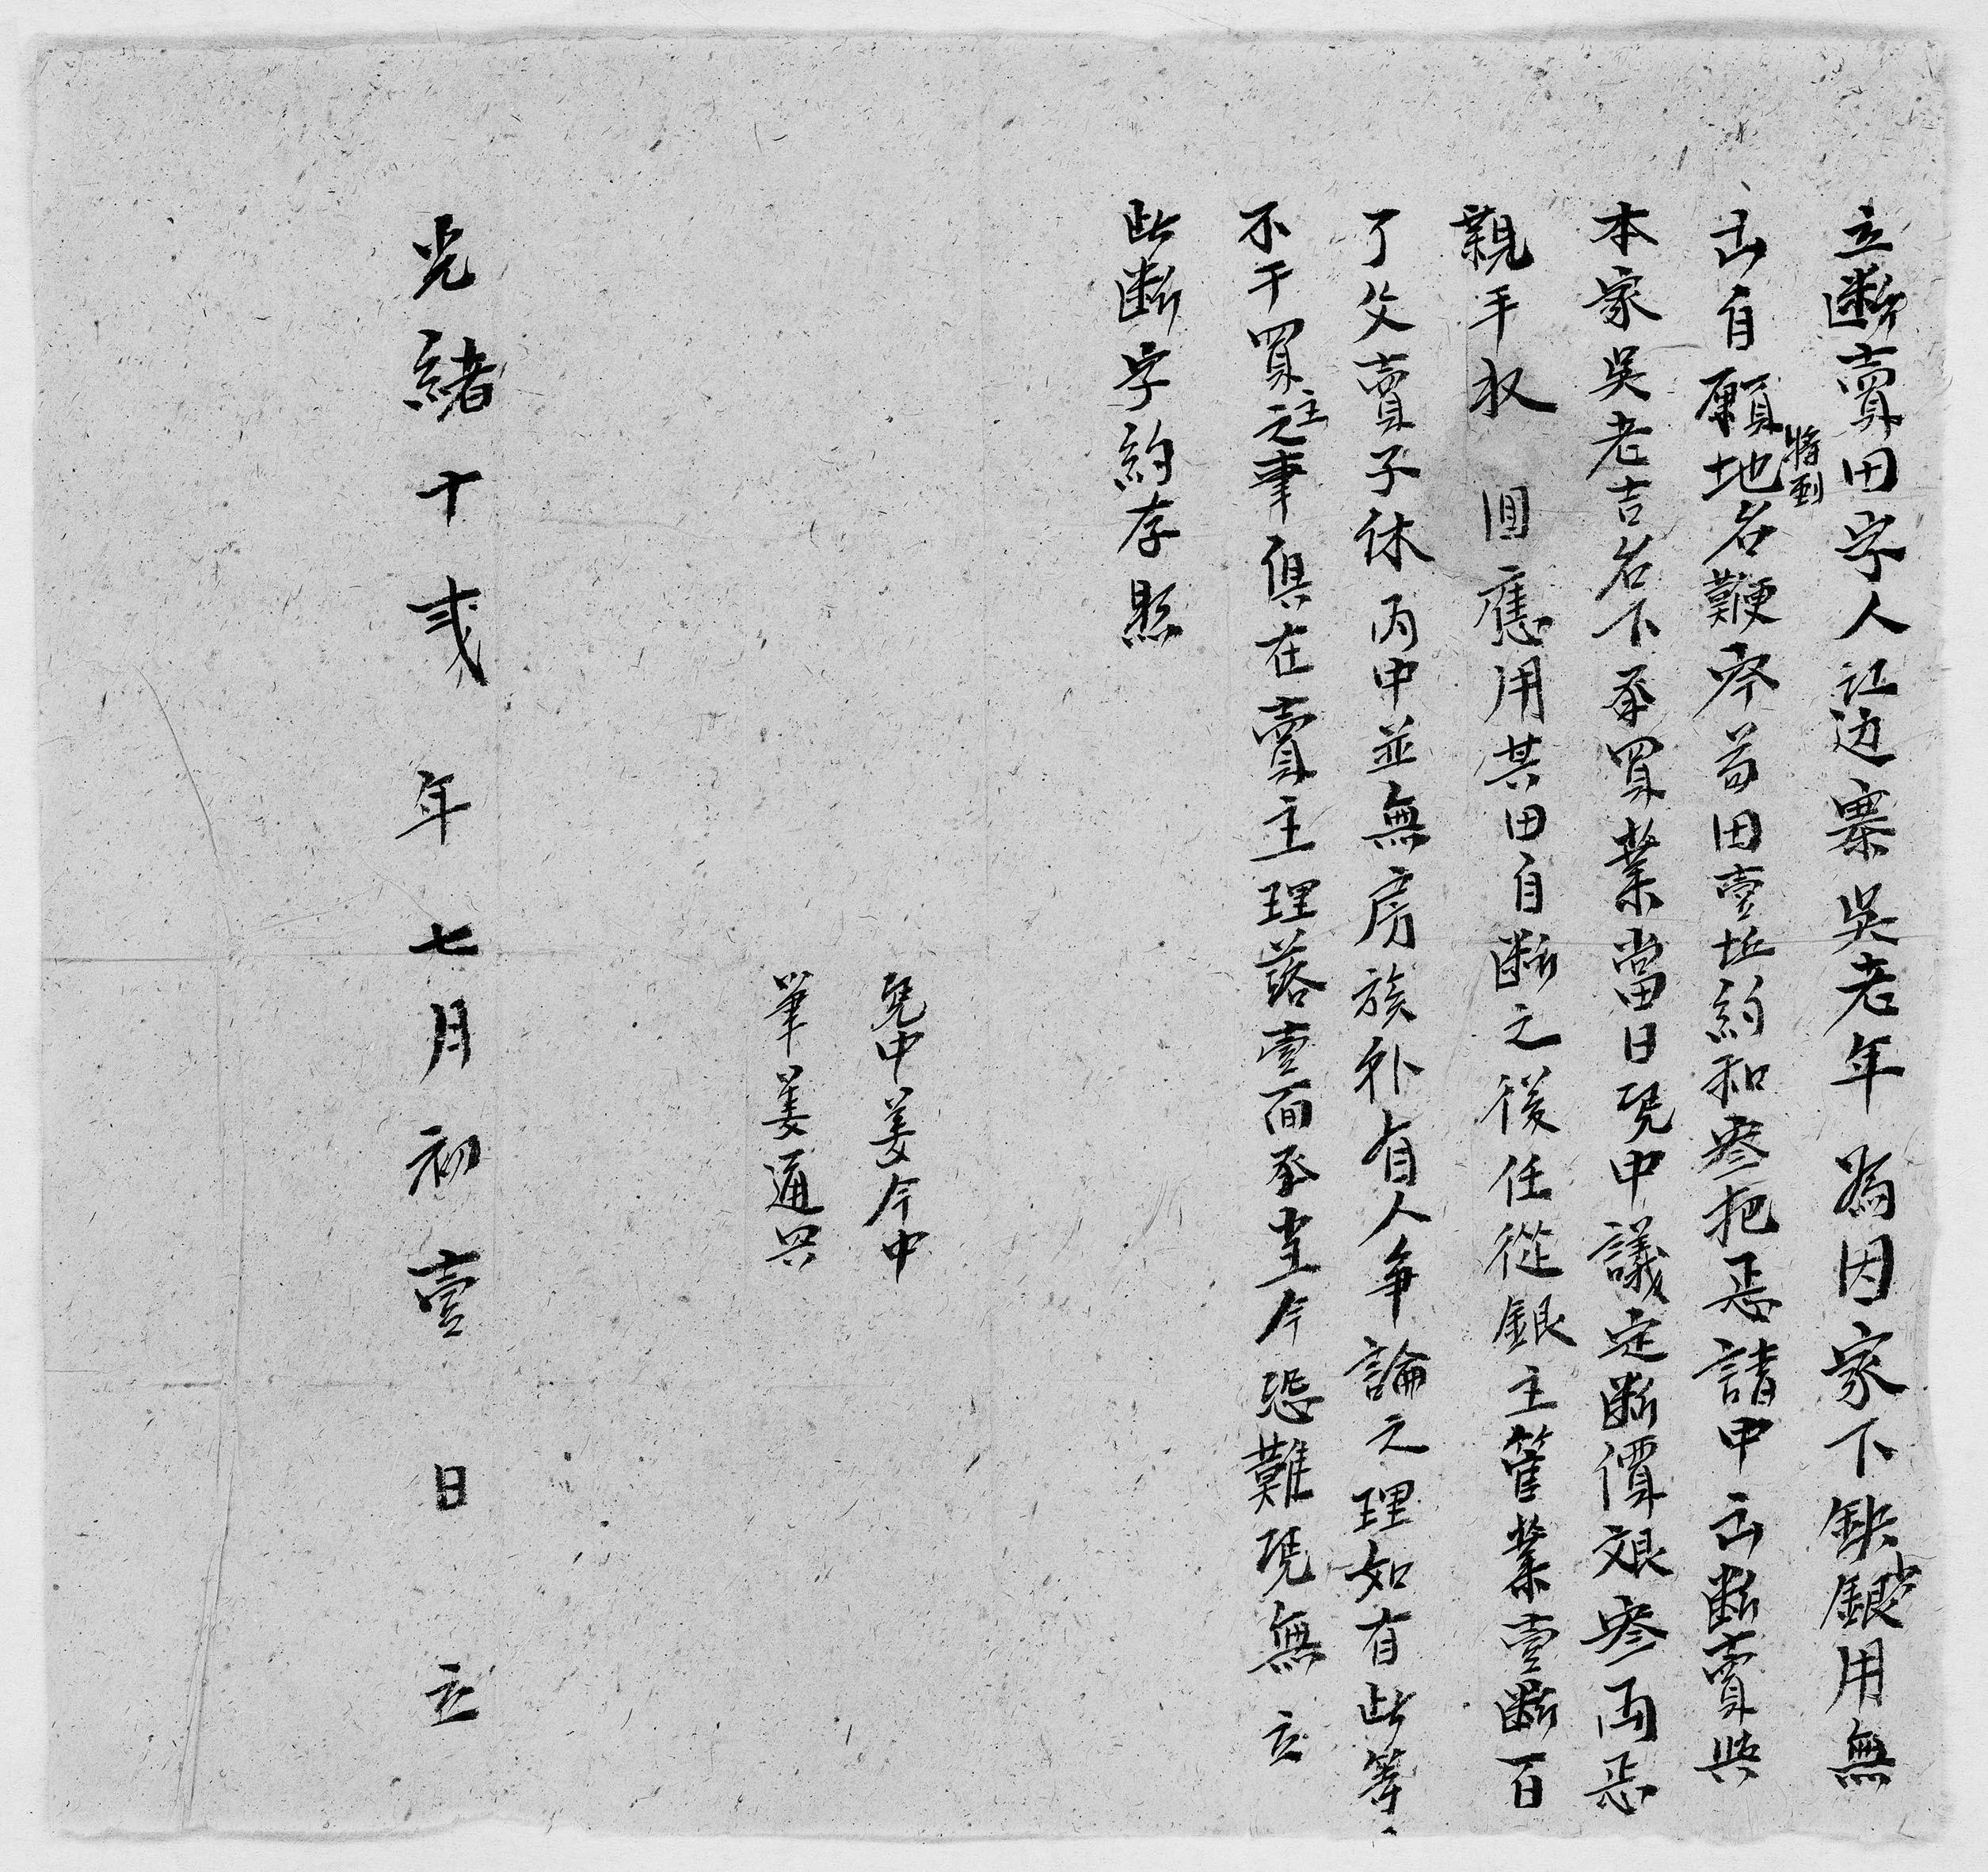 立斷賣田字人江边寨吳老年為因家下缺少銀用無
出自願將到地名鞭皆田壹坵約和叄把忢請中出斷賣與
本家吳老吉名下承買業當日凴中議定斷價艮叄両忢
親手收回應用其田自斷之後任從銀主管業壹斷百
了父賣子休丙中並無房族外有人爭論之理如有此等
不干買主之事俱在賣主理落壹面承当今恐難凴無立
此斷字約存照
凴中姜今中
筆姜通兴
光緒十貳年七月初壹日立